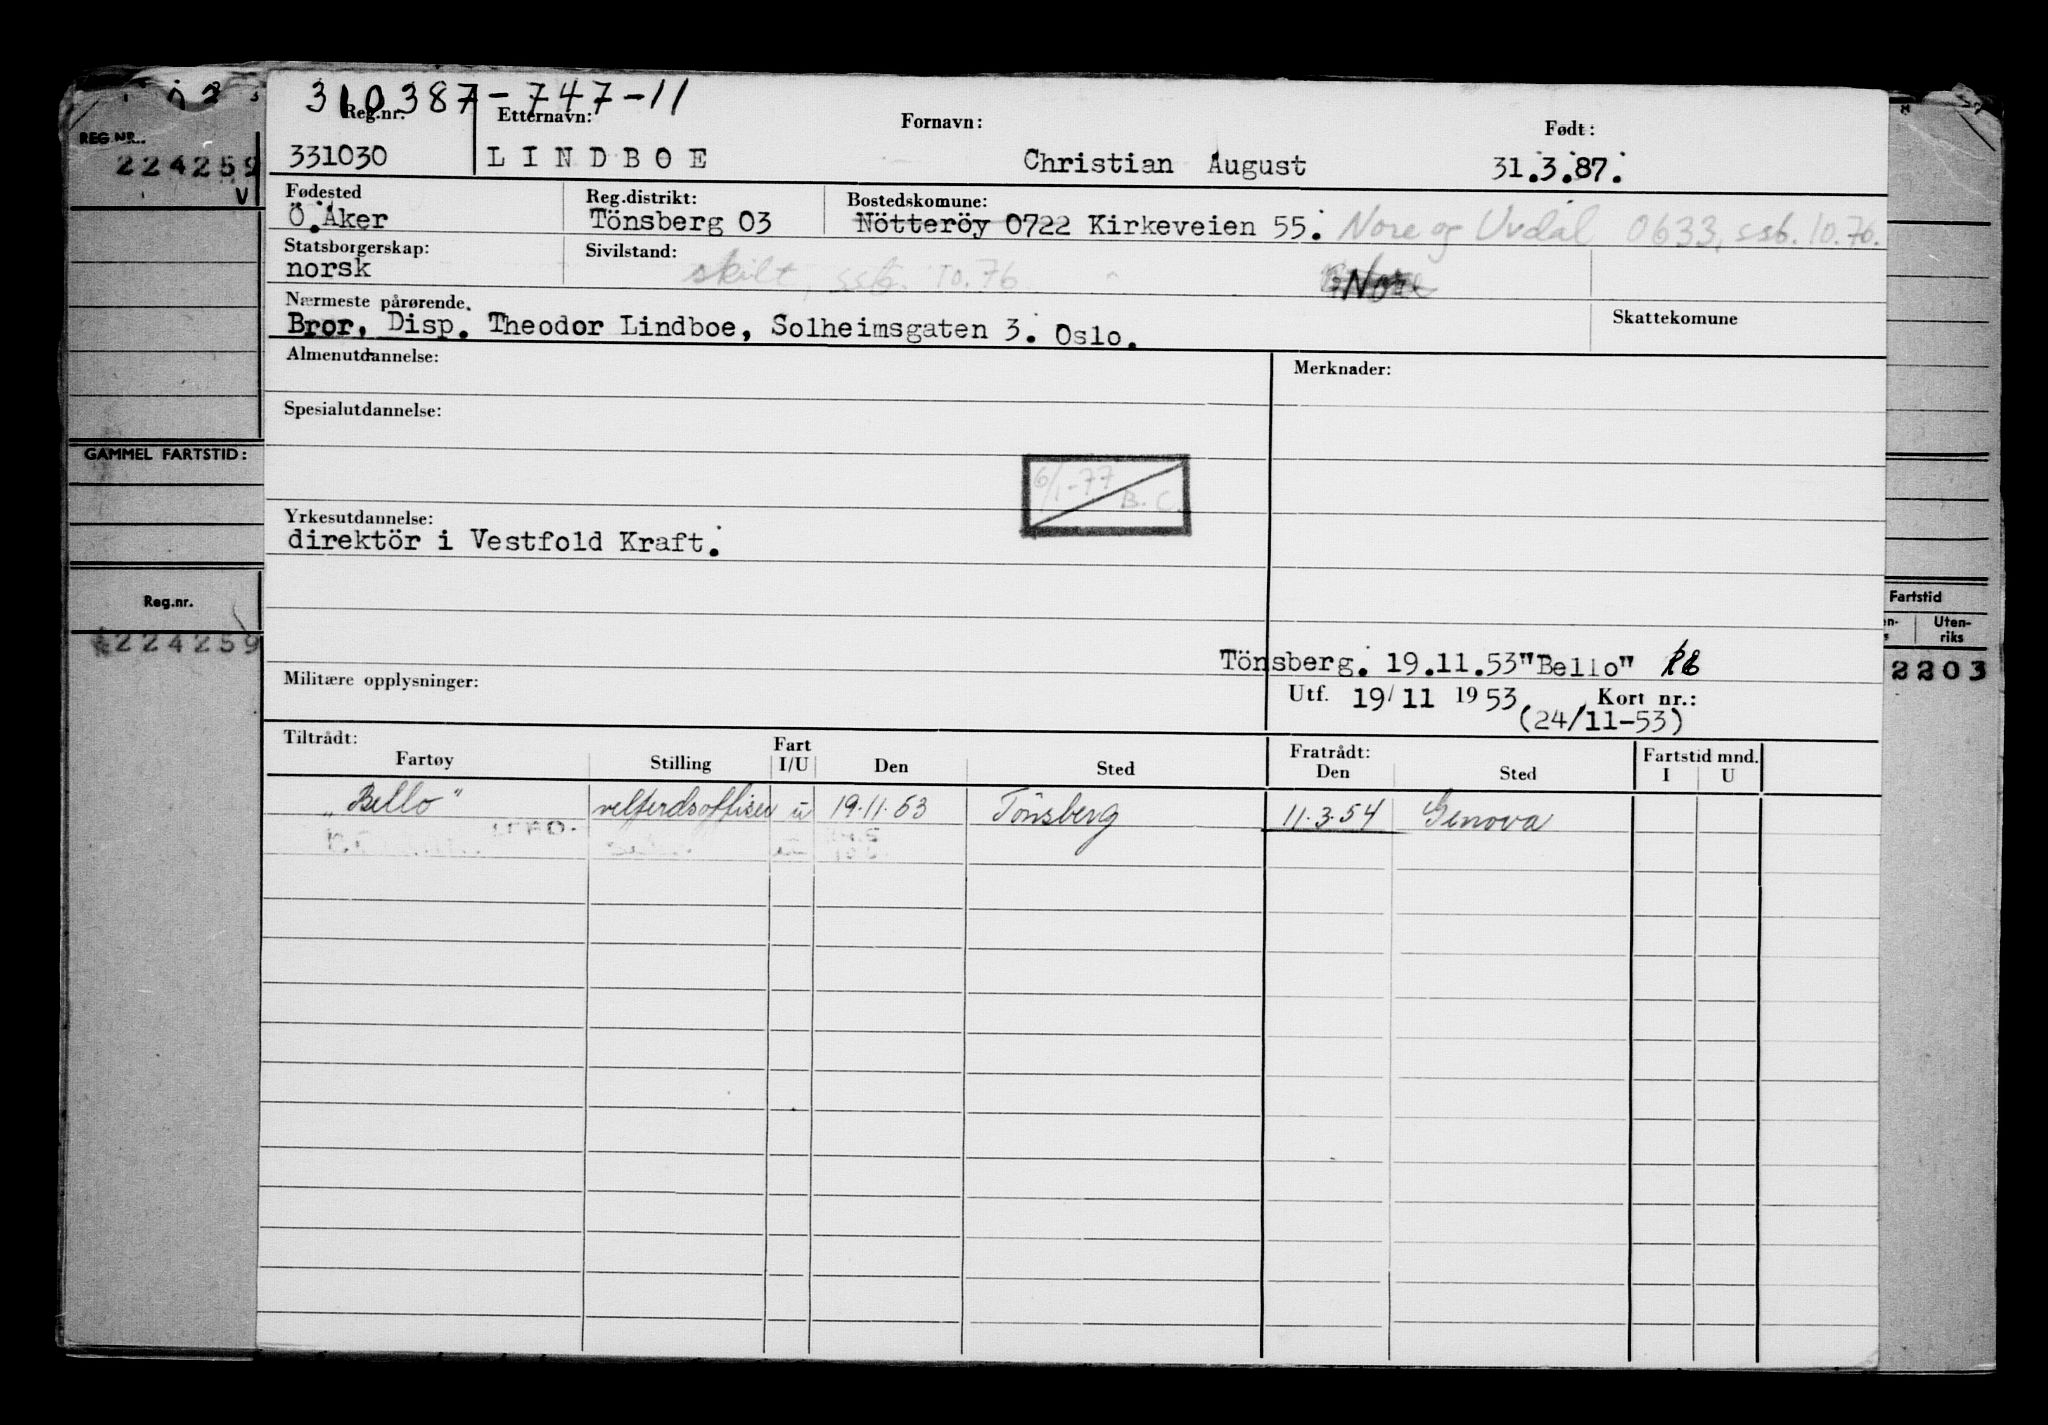 310387-747-11
Reg.nr. Etternavn: Fornavn: Født:
331030 LINDBOE Christian August 31.3.87.
Fødested Reg.distrikt: Bostedskomune:
Ö.Aker Tönsberg 03 Nötteröy 0722 Kirkeveien 55. Nore og Uvdal 0633, ssb. 10.76.
Statsborgerskap: Sivilstand:
norsk skilt, ssb. 10.76 Nore
Nærmeste pårørende. Skattekomune
Bror, Disp. Theodor Lindboe, Solheimsgaten 3. Oslo.
Almenutdannelse: Merknader:
Spesialutdannelse:
6/1-77 B.C.
Yrkesutdannelse:
direktör i Vestfold Kraft.
Tönsberg. 19.11.53 "Bello"
Militære opplysninger: Utf. 19/11 1953 Kort nr.:
(24/11-53)
Tiltrådt: Fratrådt: Fartstid mnd.
Fartøy Stilling Fart I/U Den Sted Den Sted I U
"Bello" velferdsoffiser u 19.11.53 Tönsberg 11.3.54 Genova
REG.NR.
224259
V
GAMMEL FARTSTID:
Reg.nr.
224259
Fartstid
Uten-
riks
2203